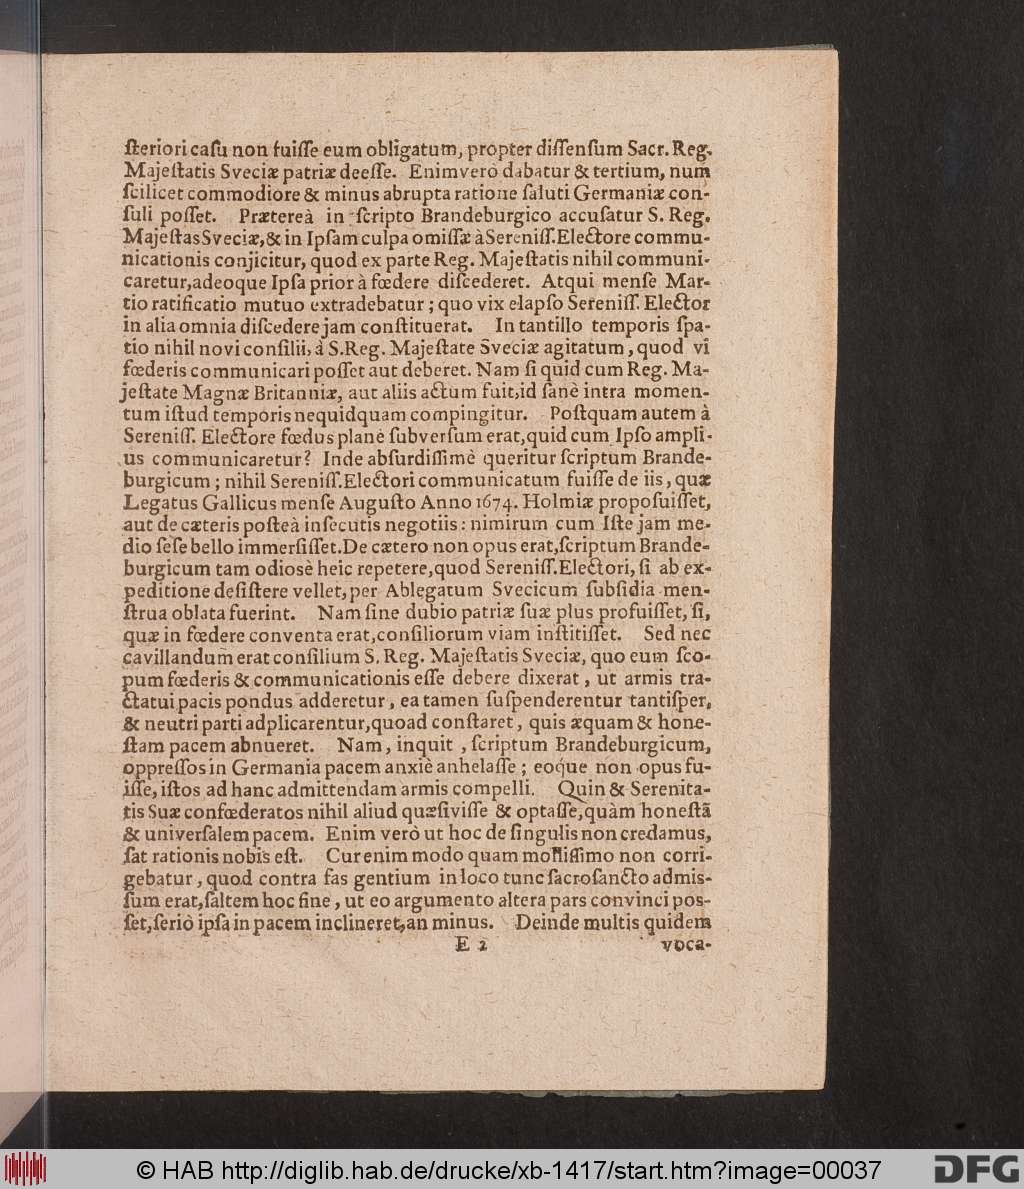 ſteriori caſu non fuiſſe eum obligatum, propter diſſenſum Sacr. Reg.
Majeſtatis Sveciæ patriæ deeſſe. Enimverò dabatur & tertium, num
ſcilicet commodiore & minus abrupta ratione ſaluti Germaniæ con-
ſuli poſſet. Prætereà in ſcripto Brandeburgico accuſatur S. Reg.
Majeſtas Sveciæ, & in Ipſam culpa omiſſæ à Sereniſſ. Electore commu-
nicationis conjicitur, quod ex parte Reg. Majeſtatis nihil communi-
caretur, adeoque Ipſa prior à fœdere diſcederet. Atqui menſe Mar-
tio ratificatio mutuo extradebatur; quo vix elapſo Sereniſſ. Elector
in alia omnia diſcedere jam conſtituerat. In tantillo temporis ſpa-
tio nihil novi conſilii, à S. Reg. Majeſtate Sveciæ agitatum, quod vi
fœderis communicari poſſet aut deberet. Nam ſi quid cum Reg. Ma-
jeſtate Magnæ Britanniæ, aut aliis actum fuit, id ſanè intra momen-
tum iſtud temporis nequidquam compingitur. Poſtquam autem à
Sereniſſ. Electore fœdus planè ſubverſum erat, quid cum Ipſo ampli-
us communicaretur? Inde abſurdiſſimè queritur ſcriptum Brande-
burgicum; nihil Sereniſſ. Electori communicatum fuiſſe de iis, quæ
Legatus Gallicus menſe Auguſto Anno 1674. Holmiæ propoſuiſſet,
aut de cæteris poſteà inſecutis negotiis: nimirum cum Iſte jam me-
dio ſeſe bello immerſiſſet. De cætero non opus erat, ſcriptum Brande-
burgicum tam odiosè heic repetere, quod Sereniſſ. Electori, ſi ab ex-
peditione deſiſtere vellet, per Ablegatum Svecicum ſubſidia men-
ſtrua oblata fuerint. Nam ſine dubio patriæ ſuæ plus profuiſſet, ſi,
quæ in fœdere conventa erat, conſiliorum viam inſtitiſſet. Sed nec
cavillandum erat conſilium S. Reg. Majeſtatis Sveciæ, quo eum ſco-
pum fœderis & communicationis eſſe debere dixerat, ut armis tra-
ctatui pacis pondus adderetur, ea tamen ſuſpenderentur tantiſper,
& neutri parti adplicarentur, quoad conſtaret, quis æquam & hone-
ſtam pacem abnueret. Nam, inquit, ſcriptum Brandeburgicum,
oppreſſos in Germania pacem anxiè anhelaſſe; eoque non opus fu-
iſſe, iſtos ad hanc admittendam armis compelli. Quin & Serenita-
tis Suæ confœderatos nihil aliud quæſiviſſe & optaſſe, quàm honeſtã
& univerſalem pacem. Enim verò ut hoc de ſingulis non credamus,
ſat rationis nobis eſt. Cur enim modo quam molliſſimo non corri-
gebatur, quod contra fas gentium in loco tunc ſacroſancto admis-
ſum erat, ſaltem hoc fine, ut eo argumento altera pars convinci pos-
ſet, ſeriò ipſa in pacem inclineret, an minus. Deinde multis quidem
E 2 voca-
© HAB http://diglib.hab.de/drucke/xb-1417/start.htm?image=00037
DFG